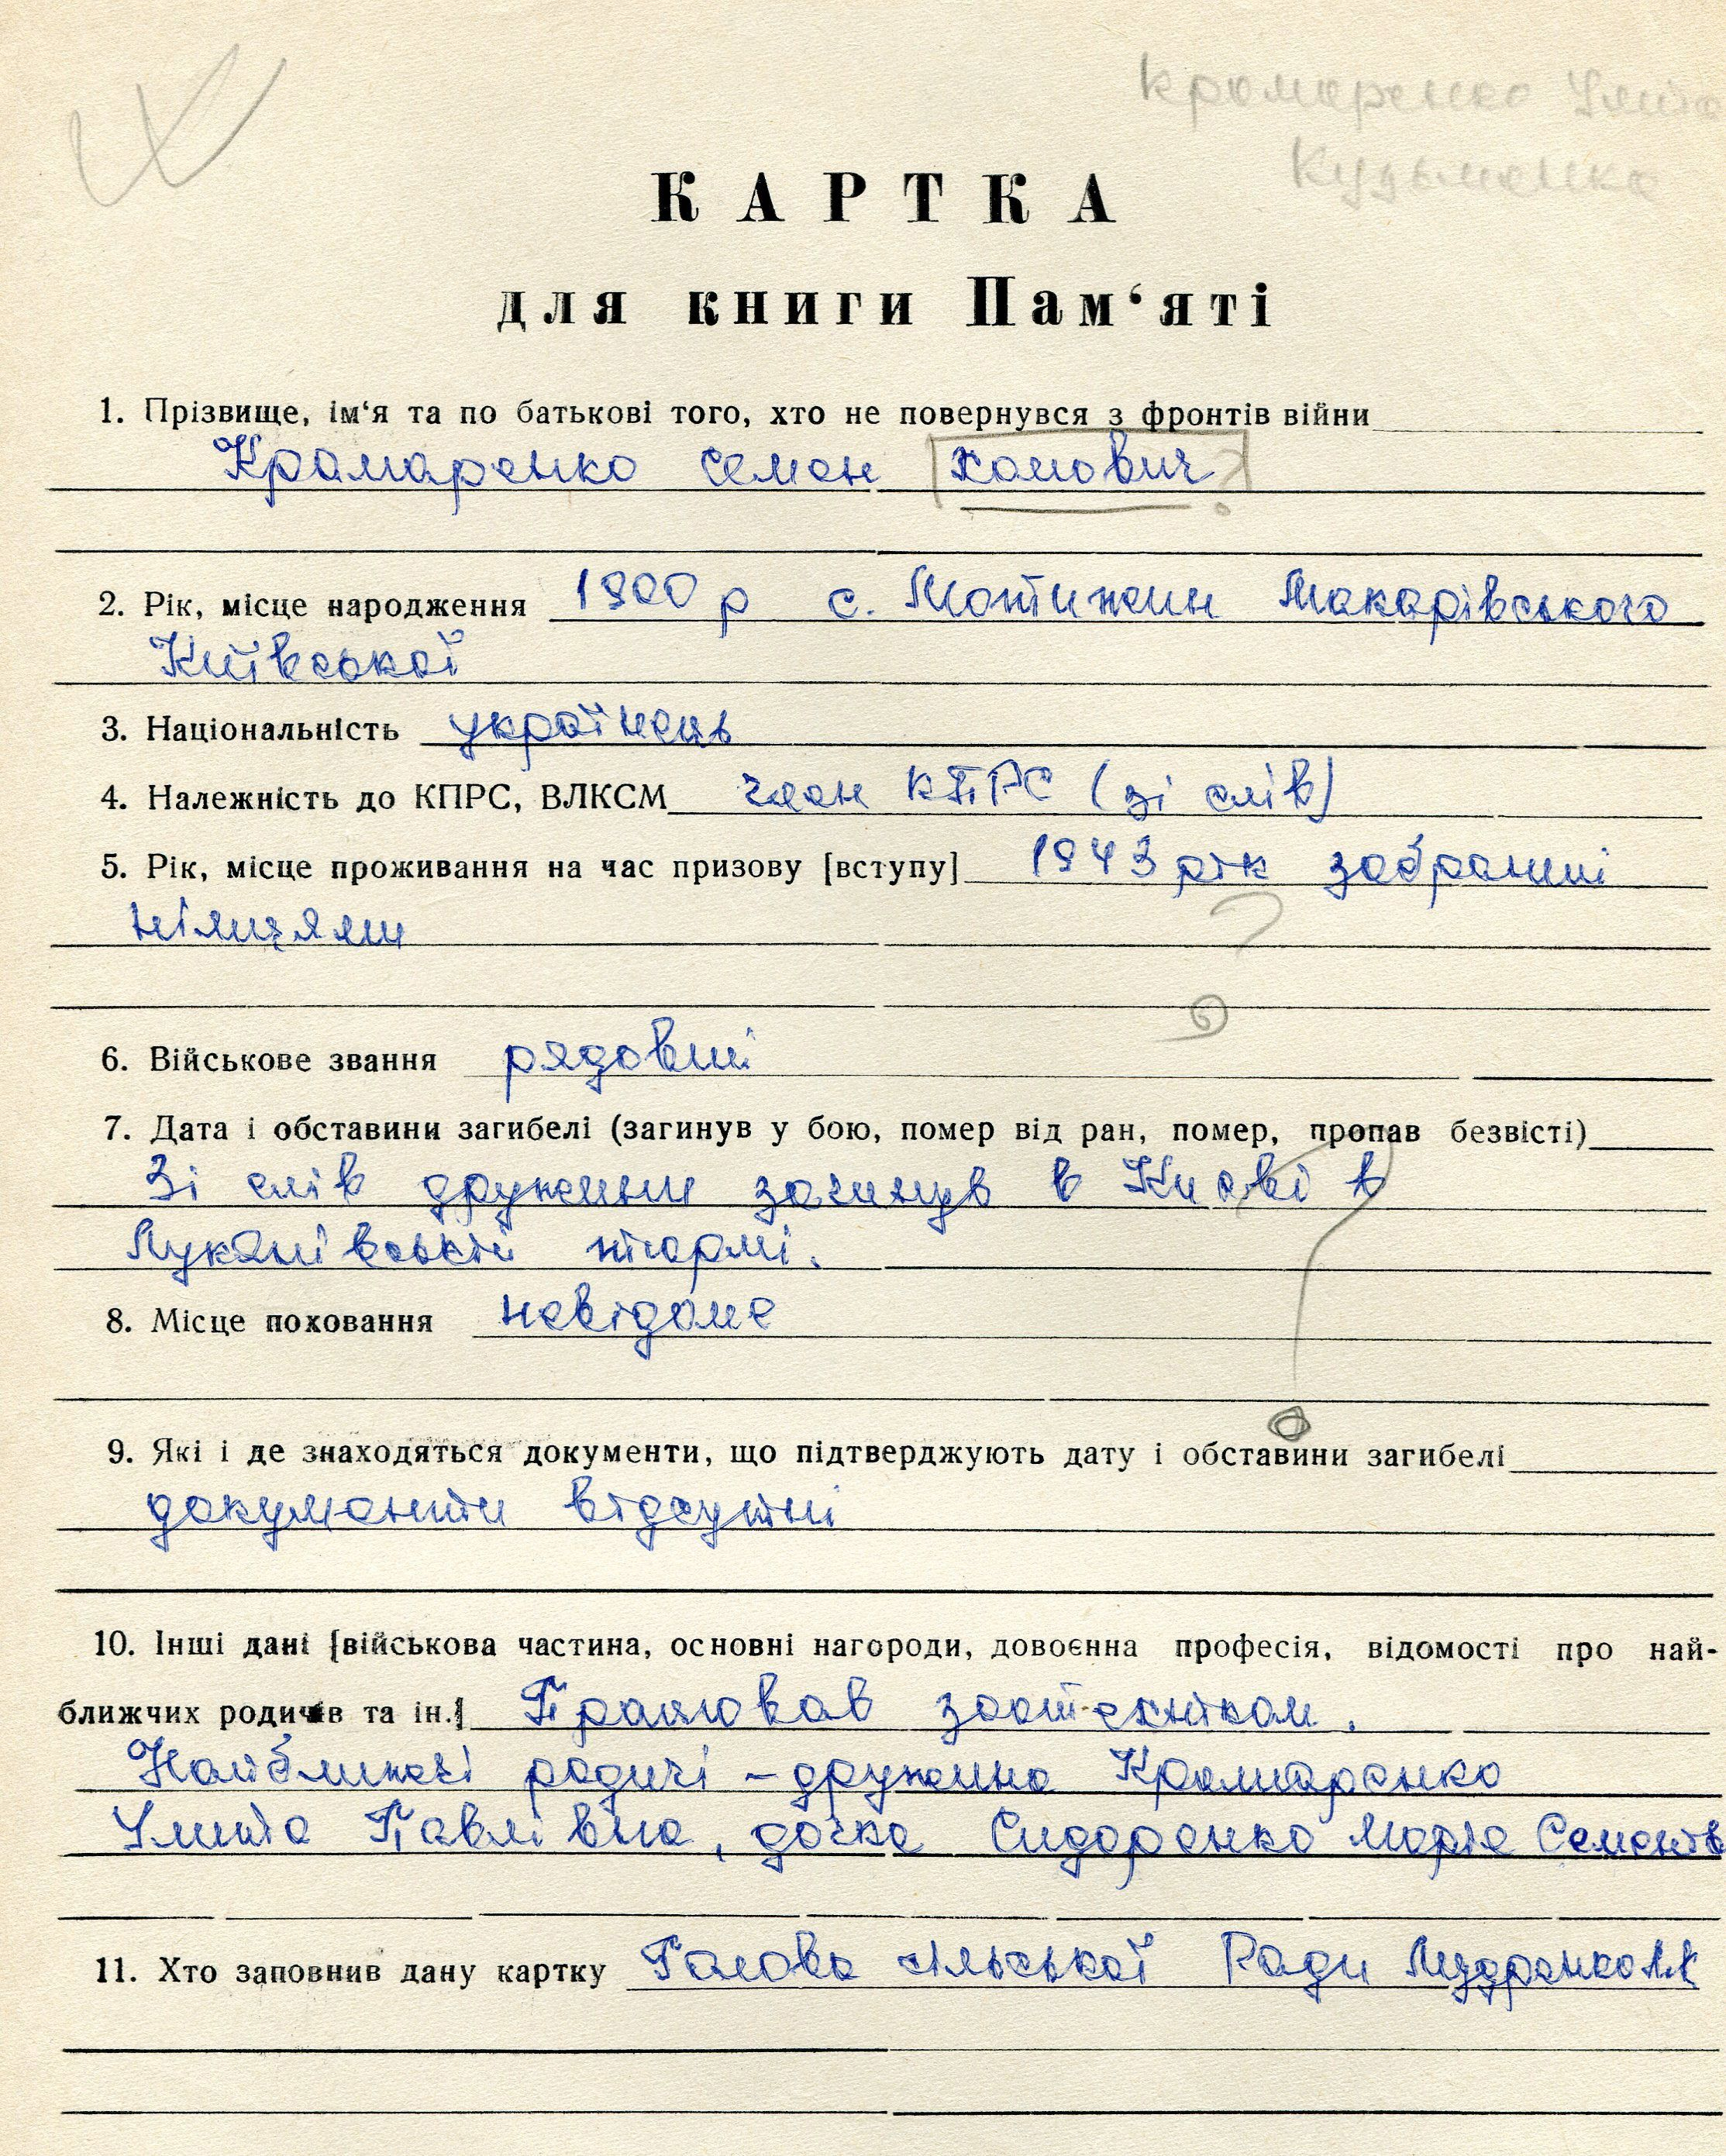 Крамаренко Улита
Кузьменко
КАРТКА
для книги Пам‘яті
1. Прізвище, ім‘я та по батькові того, хто не повернувся з фронтів війни
Крамаренко Семен Хомович ?
2. Рік, місце народження 1900 р с. Мотижин Макарівського
Київської
3. Національність українець
4. Належність до КПРС, ВЛКСМ член КПРС (зі слів)
5. Рік, місце проживання на час призову [вступу] 1943 рік забраний
німцями
6. Військове звання рядовий
7. Дата і обставини загибелі (загинув у бою, помер від ран, помер, пропав безвісті)
Зі слів дружини загинув в Києві в
Лукянівській тюрмі.
8. Місце поховання невідоме
9. Які і де знаходяться документи, що підтверджують дату і обставини загибелі
документи відсутні
10. Інші дані [військова частина, основні нагороди, довоєнна професія, відомості про най-
ближчих родичів та ін.] Працював зоотехніком.
Найближчі родичі – дружина Крамаренко
Улита Павлівна, дочка Сидоренко Марія Семенів
11. Хто заповнив дану картку Голова сільської Ради